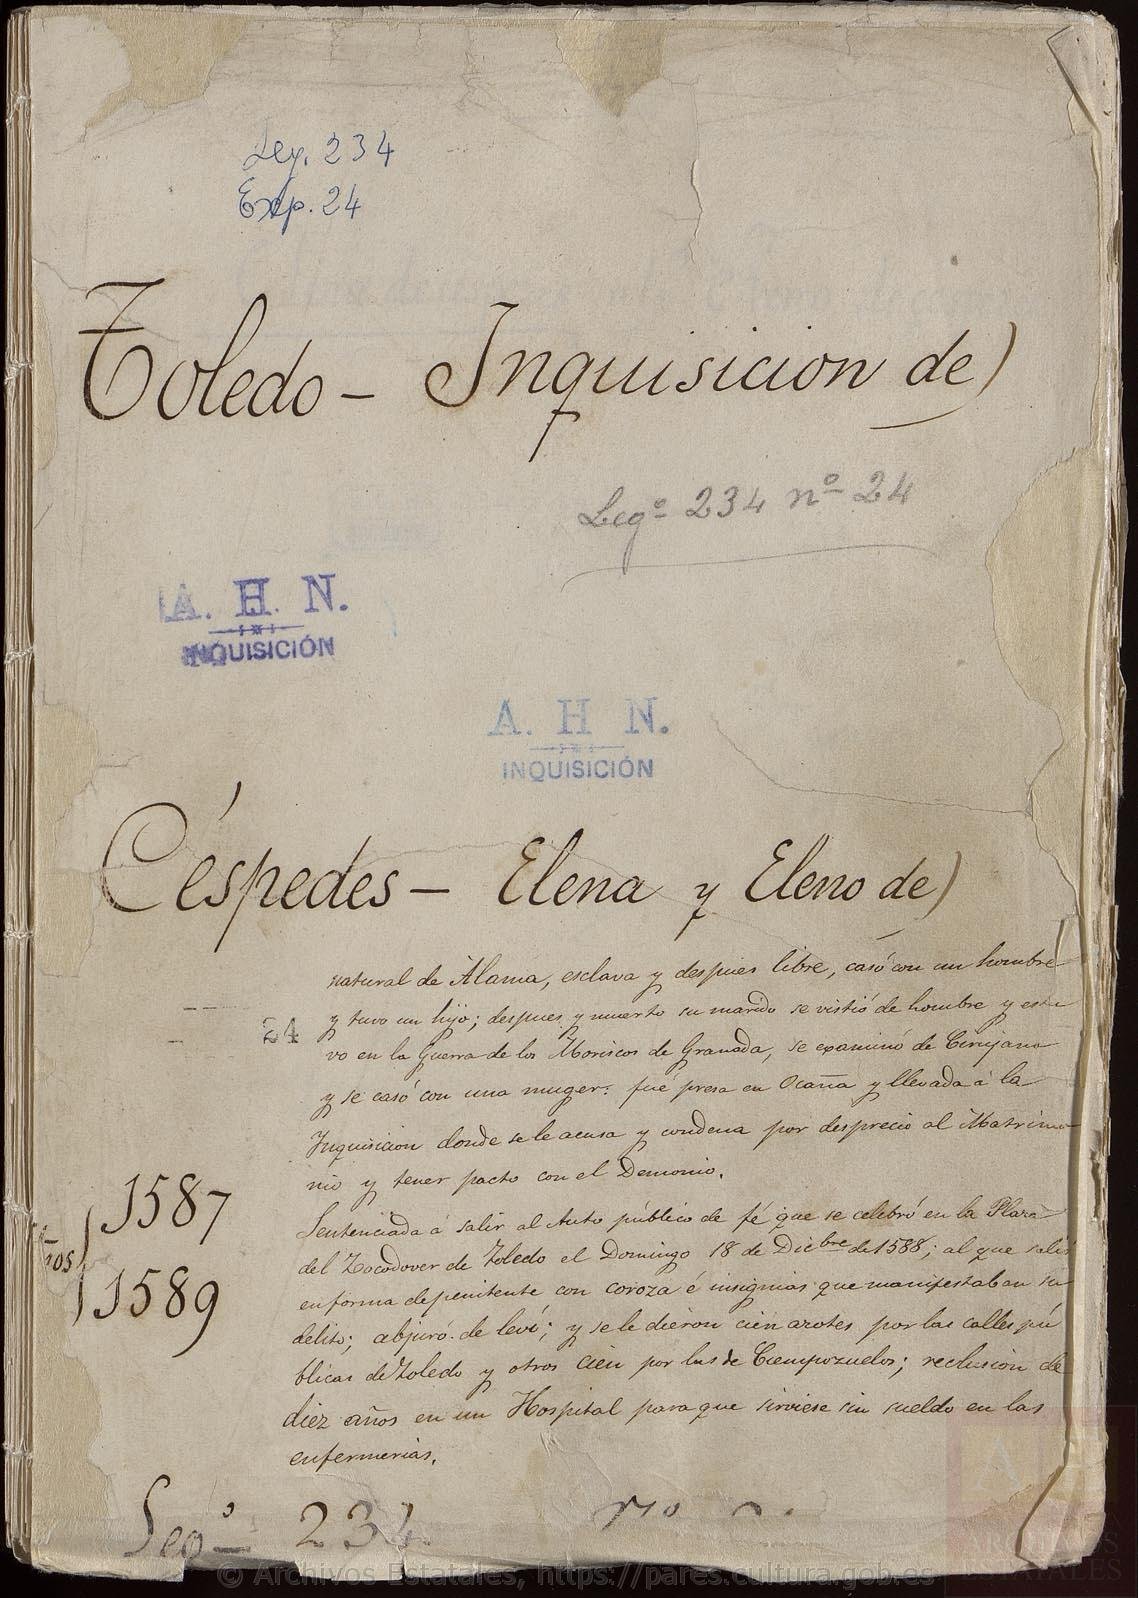 Leg. 234
Exp. 24
Toledo - Inquisicion de)
Legº 234 nº 24
A. H. N.
INQUISICIÓN
A. H N.
INQUISICIÓN
Céspedes - Elena y Eleno de)
natural de Alama, esclava y despues libre, casó con un hombre
24
y tuvo un hijo; despues, y muerto su marido se vistió de hombre y estu
vo en la Guerra de los Moriscos de Granada, se examinó de Cirujano
y se casó con una muger: fué presa en Ocaña y llevada á la
Inquisicion donde se le acusa y condena por desprecio al Matrimo
nio y tener pacto con el Demonio.
1587
Sentenciada á salir al Auto público de fé que se celebró en la Plaza
del Zocodover de Toledo el Domingo 18 de Dicbre de 1588; al que salió
ños
1589
en forma de penitente con coroza é insignias que manifestaban su
delito; abjuró de leví; y se le dieron cien azotes por las calles pú
blicas de Toledo y otros cien por las de Ciempozuelos; reclusion de
diez años en un Hospital para que sirviese sin sueldo en las
enfermerias.
Legº 234 nº
© Archivos Estatales, https://pares.cultura.gob.es
ARCHIVOS
ESTATALES